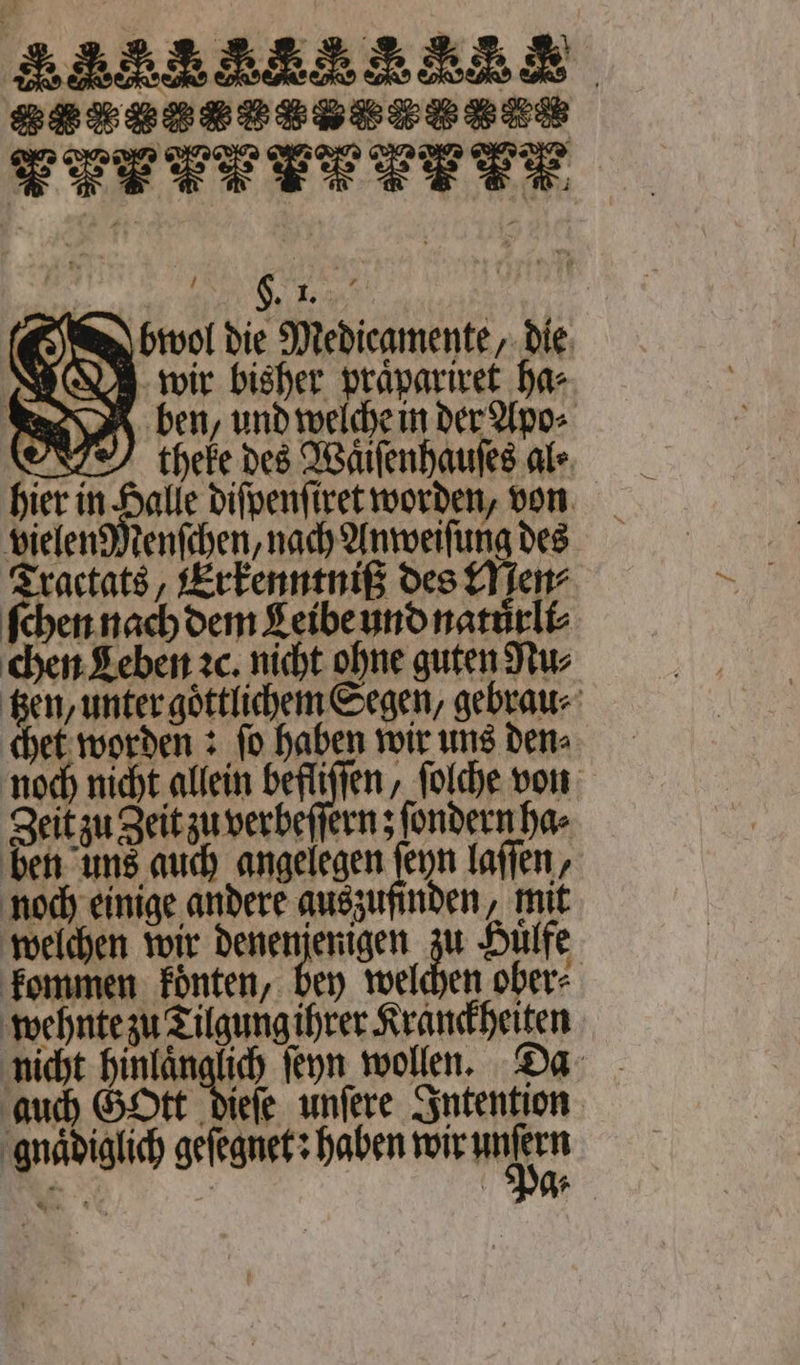 §. 1.
Obwol die Medicamente, die
wir bisher präpariret ha-
ben, und welche in der Apo-
theke des Wäisenhauses al-
hier in Halle dispensiret worden, von
vielen Menschen, nach Anweisung des
Tractats, Erkenntniß des Men-
schen nach dem Leibe und natürli-
chen Leben ꝛc. nicht ohne guten Nu-
tzen, unter göttlichem Segen, gebrau-
chet worden : so haben wir uns den-
noch nicht allein beflissen, solche von
Zeit zu Zeit zu verbessern; sondern ha-
ben uns auch angelegen seyn lassen,
noch einige andere auszufinden, mit
welchen wir denenjenigen zu Hülfe
kommen könten, bey welchen ober-
wehnte zu Tilgung ihrer Kranckheiten
nicht hinlänglich seyn wollen. Da
auch GOtt diese unsere Intention
gnädiglich gesegnet: haben wir unsern
Pa-